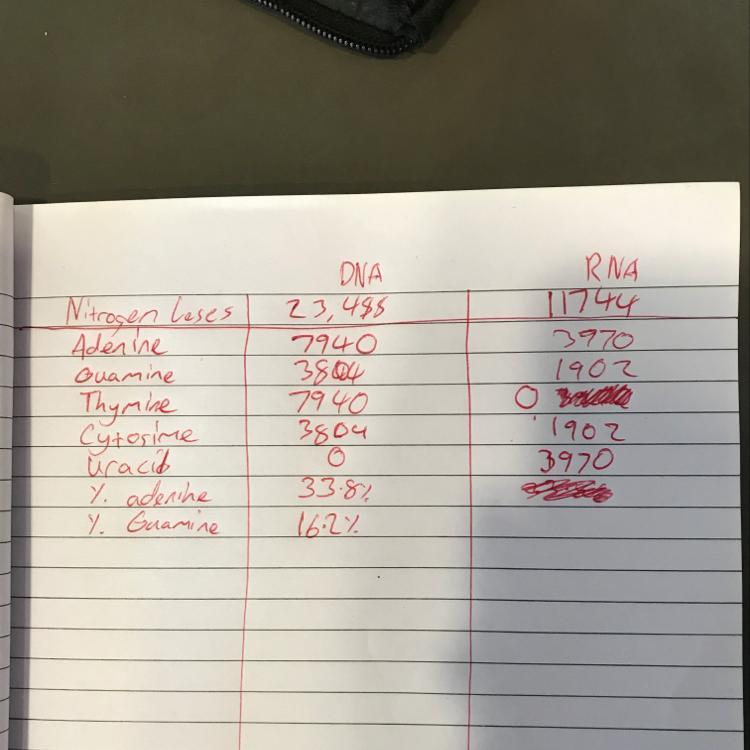 DNA RNA
Nitrogen bases 23,488 11744
Adenine 7940 3970
Guamine 3804 1902
Thymine 7940 0
Cytosine 3804 1902
Uracib 0 3970
%. adenine 33.8%
%. Guamine 16.2%